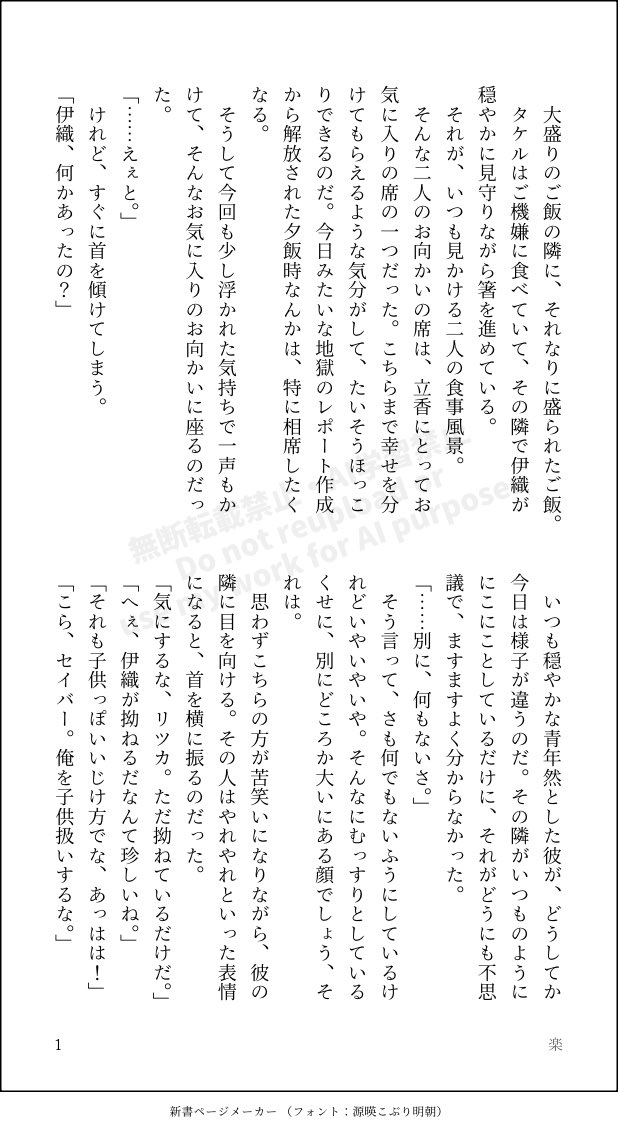 大盛りのご飯の隣に、それなりに盛られたご飯。
タケルはご機嫌に食べていて、その隣で伊織が
穏やかに見守りながら箸を進めている。
それが、いつも見かける二人の食事風景。
そんな二人のお向かいの席は、立香にとってお
気に入りの席の一つだった。こちらまで幸せを分
けてもらえるような気分がして、たいそうほっこ
りできるのだ。今日みたいな地獄のレポート作成
から解放された夕飯時なんかは、特に相席したく
なる。
そうして今回も少し浮かれた気持ちで一声もか
けて、そんなお気に入りのお向かいに座るのだっ
た。
「……えぇと。」
けれど、すぐに首を傾けてしまう。
「伊織、何かあったの？」
いつも穏やかな青年然とした彼が、どうしてか
今日は様子が違うのだ。その隣がいつものように
にこにことしているだけに、それがどうにも不思
議で、ますますよく分からなかった。
「……別に、何もないさ。」
そう言って、さも何でもないふうにしているけ
れどいやいやいや。そんなにむっすりとしている
くせに、別にどころか大いにある顔でしょう、そ
れは。
思わずこちらの方が苦笑いになりながら、彼の
隣に目を向ける。その人はやれやれといった表情
になると、首を横に振るのだった。
「気にするな、リツカ。ただ拗ねているだけだ。」
「へぇ、伊織が拗ねるだなんて珍しいね。」
「それも子供っぽいいじけ方でな、あっはは！」
「こら、セイバー。俺を子供扱いするな。」
無断転載禁止・AI学習禁止
Do not reupload or
use my work for AI purposes
1
楽
新書ページメーカー（フォント：源暎こぶり明朝）